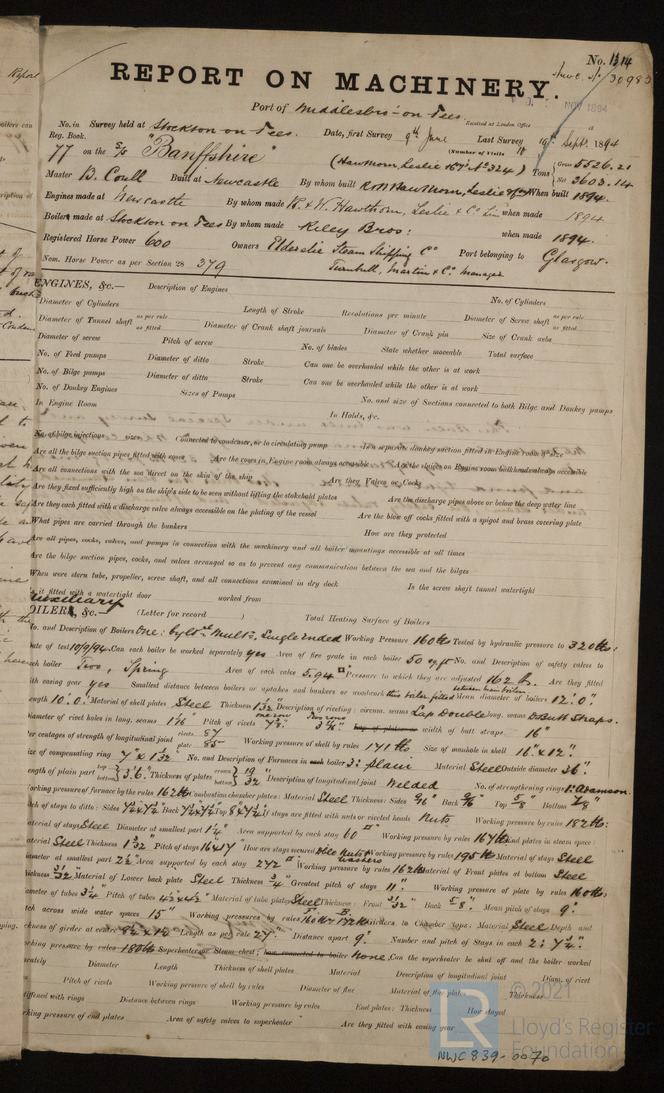 No. 1314
REPORT ON MACHINERY.
NOV 1894
Port of Middlesbro-on-Tees
Received at London Office
No. in Survey held at Stockton-on-Tees. Date, first Survey 9th June Last Survey Sept. 1894
Reg. Book. (Number of Visits
77 on the S/S "Banffshire" (Hawthorn, Leslie & Co's No 324) Tons Gross 5526.21 Net 3603.14
Master B. Coull Built at Newcastle By whom built R & W Hawthorn, Leslie & Co When built 1894.
Engines made at Newcastle By whom made R. & W. Hawthorn, Leslie & Co Lim when made 1894
Boiler made at Stockton on Tees By whom made Riley Bros: when made 1894.
Registered Horse Power 600 Owners Elderslie Steam Shipping Co Port belonging to Glasgow.
Nom. Horse Power as per Section 28 379 Turnbull, Martin & Co. Manager
ENGINES, &c.— Description of Engines No. of Cylinders
Diameter of Cylinders Length of Stroke Revolutions per minute Diameter of Screw shaft as per rule as fitted
Diameter of Tunnel shaft as per rule as fitted Diameter of Crank shaft journals Diameter of Crank pin Size of Crank webs
Diameter of screw Pitch of screw No. of blades State whether moveable Total surface
No. of Feed pumps Diameter of ditto Stroke Can one be overhauled while the other is at work
No. of Bilge pumps Diameter of ditto Stroke Can one be overhauled while the other is at work
No. of Donkey Engines Sizes of Pumps No. and size of Suctions connected to both Bilge and Donkey pumps
In Engine Room In Holds, &c.
No. of bilge injections sizes Connected to condenser, or to circulating pump Is a separate donkey suction fitted in Engine room & size
Are all the bilge suction pipes fitted with roses Are the roses in Engine room always accessible Are the sluices on Engine room bulkheads always accessible
Are all connections with the sea direct on the skin of the ship Are they Valves or Cocks
Are they fixed sufficiently high on the ship's side to be seen without lifting the stokehold plates Are the discharge pipes above or below the deep water line
Are they each fitted with a discharge valve always accessible on the plating of the vessel Are the blow off cocks fitted with a spigot and brass covering plate
What pipes are carried through the bunkers How are they protected
Are all pipes, cocks, valves, and pumps in connection with the machinery and all boiler mountings accessible at all times
Are the bilge suction pipes, cocks, and valves arranged so as to prevent any communication between the sea and the bilges
When were stern tube, propeller, screw shaft, and all connections examined in dry dock Is the screw shaft tunnel watertight
is it fitted with a watertight door worked from
Auxiliary
OILERS, &c.— (Letter for record ) Total Heating Surface of Boilers
No. and Description of Boilers One: Cylr Mult. Single Ended Working Pressure 160 lbs Tested by hydraulic pressure to 320 lbs
ate of test 10/9/94. Can each boiler be worked separately yes Area of fire grate in each boiler 50 sq ft No. and Description of safety valves to
each boiler Two, Spring Area of each valve 5.94 □" Pressure to which they are adjusted 162 lbs. Are they fitted
ith casing gear yes Smallest distance between boilers or uptakes and bunkers or woodwork this boiler fitted between main boilers Mean diameter of boilers 12'.0"
ength 10'.0" Material of shell plates Steel Thickness 1 1/32" Description of riveting: circum. seams Lap Double long. seams D Butt Straps.
iameter of rivet holes in long. seams 1 1/16" Pitch of rivets width of butt straps 16"
er centages of strength of longitudinal joint rivets 87 plate 85 Working pressure of shell by rules 171 lbs Size of manhole in shell 16" x 12".
ize of compensating ring 7" x 1 1/32" No. and Description of Furnaces in each boiler 3: plain Material Steel Outside diameter 36"
ength of plain part top bottom 3'.6" Thickness of plates crown 19/32 bottom Description of longitudinal joint Welded No. of strengthening rings 1: Adamson
orking pressure of furnace by the rules 162 lbs Combustion chamber plates: Material Steel Thickness: Sides 9/16" Back 9/16" Top 5/8" Bottom 7/8"
itch of stays to ditto: Sides Back Top If stays are fitted with nuts or riveted heads Nuts Working pressure by rules 182 lbs:
aterial of stays Steel Diameter at smallest part 1 1/4" Area supported by each stay 60 □" Working pressure by rules 167 lbs End plates in steam space:
aterial Steel Thickness 1 1/32" Pitch of stays 16 x 17 How are stays secured Dble Nuts & washers Working pressure by rules 195 lbs Material of stays Steel
iameter at smallest part Area supported by each stay 272 □" Working pressure by rules 162 lbs Material of Front plates at bottom Steel
hickness Material of Lower back plate Steel Thickness 3/4" Greatest pitch of stays 11" Working pressure of plate by rules 160 lbs
iameter of tubes 3 1/4" Pitch of tubes 4 1/2 x 4 1/2" Material of tube plates Steel Thickness: Front Back 5/8" Mean pitch of stays 9"
itch across wide water spaces 15" Working pressures by rules Girders to Chamber tops: Material Steel Depth and
ickness of girder at centre Length as per rule 27" Distance apart 9" Number and pitch of Stays in each 2: 7 1/4"
orking pressure by rules 180 lbs Superheater or Steam chest; how connected to boiler None. Can the superheater be shut off and the boiler worked
arately Diameter Length Thickness of shell plates Material Description of longitudinal joint Diam. of rivet
Pitch of rivets Working pressure of shell by rules Diameter of flue Material of flue plates Thickness
tiffened with rings Distance between rings Working pressure by rules End plates: Thickness How stayed
orking pressure of end plates Area of safety valves to superheater Are they fitted with easing gear
LR
© 2021
Lloyd's Register
Foundation
NWC839-0070